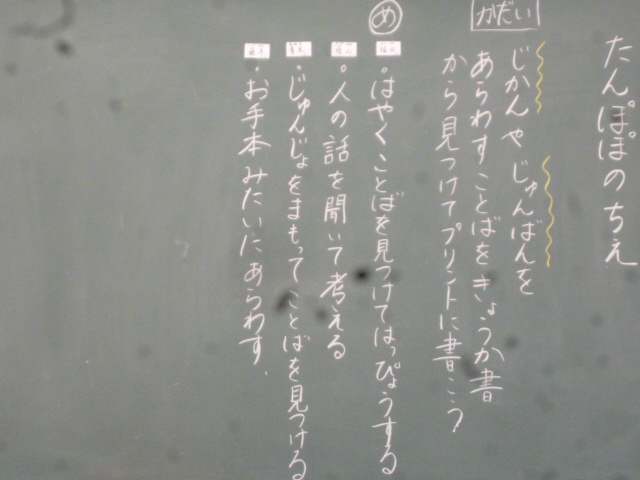 たんぽぽのちえ
かだい
じかんやじゅんばんを
あらわすことばをきょうか書
から見つけてプリントに書こう
め
・はやくことばを見つけてはっぴょうする
・人の話を聞いて考える
・じゅんじょをまもってことばを見つける
・お手本みたいにあらわす。